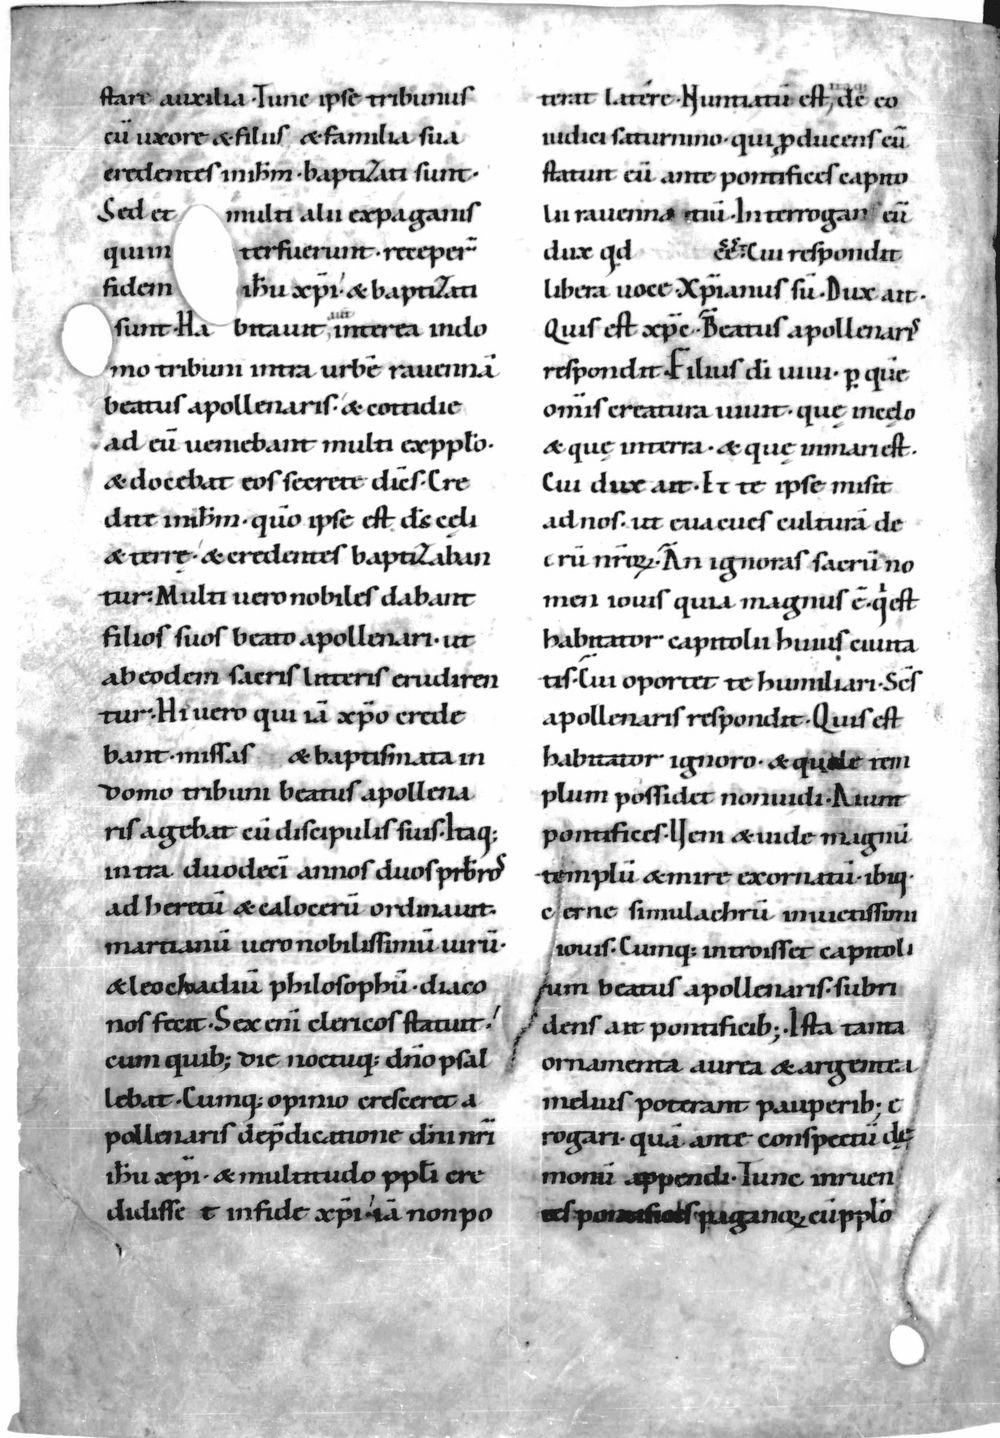 stare auxilia · Tunc ipse tribunus
cū uxore & filiis & familia sua
credentes inihm̄ · baptizati sunt ·
Sed et multi alii expaganis
quiin terfuerunt · receper̄
fidem ihu xp̄i · & baptizati
sunt · Ha bitauit interea indo
mo tribuni intra urbē rauennā
beatus apollenaris · & cottidie
ad eū ueniebant multi expplo ·
& docebat eos secrete dicēs · Cre
dite inihm̄ · quō ipse est ds̄ cęli
& terrę · & credentes baptizaban
tur : Multi uero nobiles dabant
filios suos beato apollenari · ut
abeodem sacris litteris erudiren
tur · Hi uero qui iā xp̄o crede
bant · missas & baptismata in
domo tribuni beatus apollena
ris agebat cū discipulis suis · Itaq;
intra duodecī annos duos prb̄ros
adheretū & calocerū ordinauit ·
martianū uero nobilissimū uirū ·
& leochadiū philosophū · diaco
nos fecit · Sex enī clericos statuit ·
cum quib; die noctuq; dn̄o psal
lebat · Cumq; opinio cresceret a
pollenaris dep̄dicatione dn̄i nr̄i
ihū xp̄i · & multitudo ppli cre
didisse t infide xp̄i · iā nonpo
terat latere · Nuntiatū est, de eo
iudici saturnino · qui ꝓducens eū
statuit eū ante pontifices capito
lii rauenna tiū · Interrogans eū
dux qd eē͞t · Cui respondit
libera uoce · Xp̄ianus sū · Dux ait ·
Quis est xp̄c · Beatus apollenaris
respondit · Filius di uiui · ꝑ quē
om̄is creatura uiuit · quę incęlo
& quę interra · & quę inmari est ·
Cui dux ait · Et te ipse misit
adnos · ut euacues culturā de
orū nr̄oꝝ · An ignoras sacrū no
men iouis quia magnus ē · qi est
habitator capitolii huius ciuita
tis · Cui oportet te humiliari · Scs̄
apollenaris respondit · Quis est
habitator ignoro · & quale tem
plum possidet nonuidi · Aiunt
pontifices · Veni & uide magnū
templū & mire exornatū · ibiq ·
cerne simulachrū inuictissimi
iouis · Cumq; introisset capitoli
um beatus apollenaris · subri
dens ait pontificib; · Ista tanta
ornamenta aurea & argentea
melius poterant pauperib; e
rogari · quā ante conspectū dę
monū appendi · Tunc inruen
tes pontifices paganoꝝ cū pplo